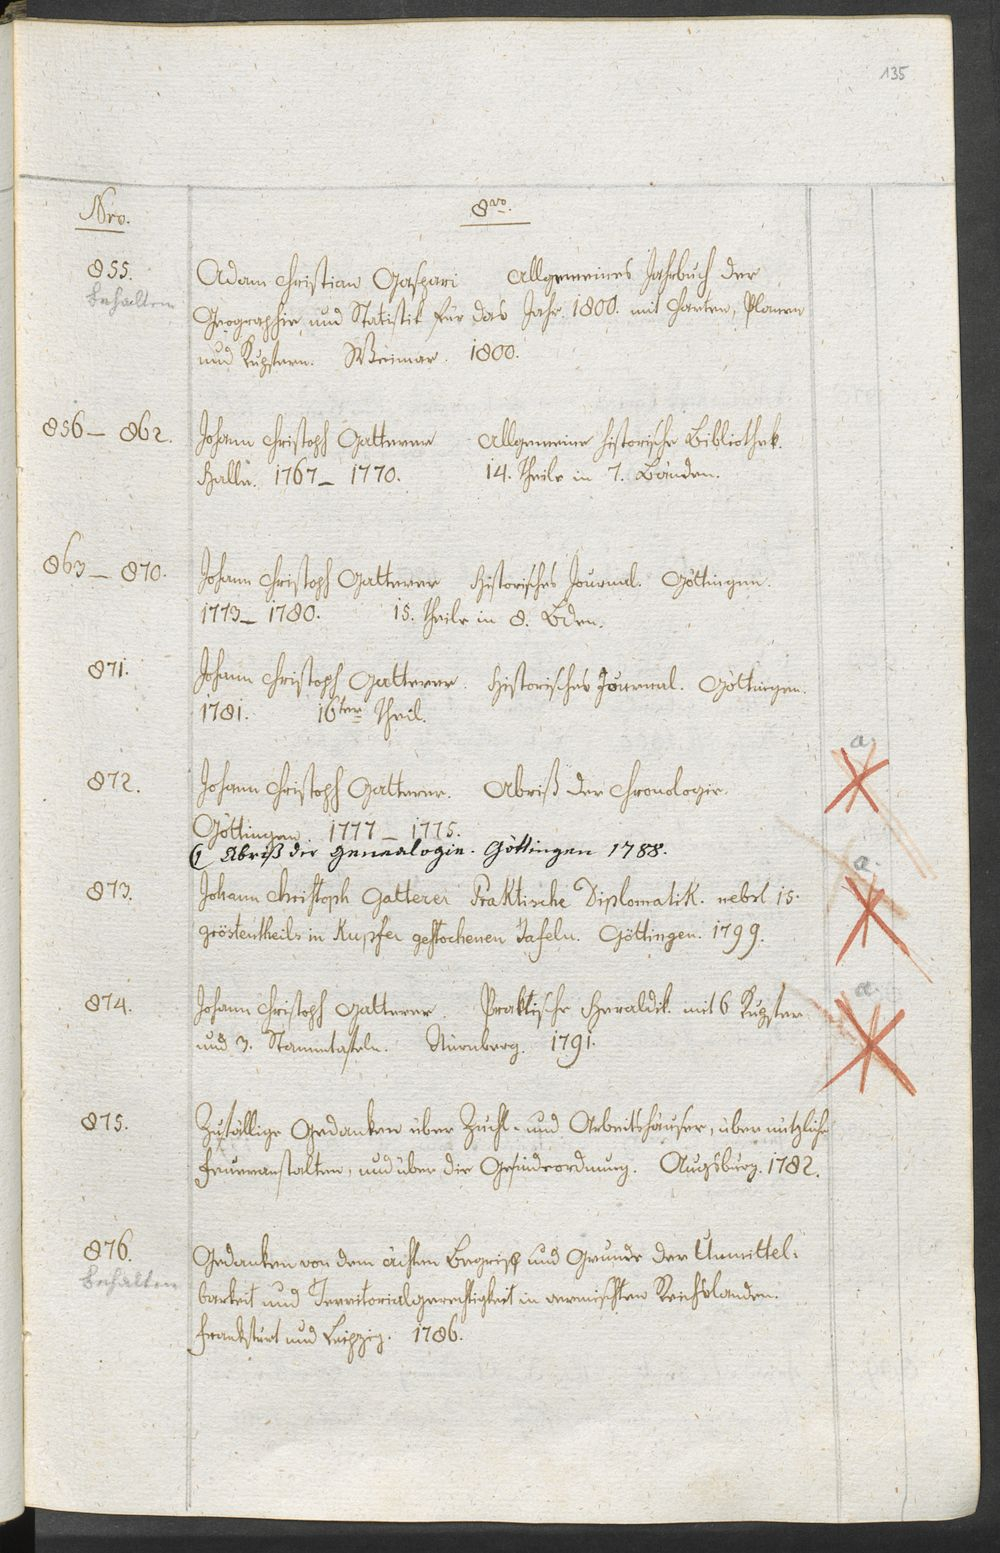 135
Nro.
8vo.
855.
behalten
Adam Christian Gaspari Allgemeines Jahrbuch der
Geographie und Statistik für das Jahr 1800. mit Charten, Planen
und Kupfern. Weimar. 1800.
856 – 862.
Johann Christoph Gatterer Allgemeine historische Bibliothek.
Halle. 1767 – 1770. 14. Theile in 7. Bänden.
863 – 870.
Johann Christoph Gatterer Historisches Journal. Göttingen.
1773 – 1780. 15. Theile in 8. Bden.
871.
Johann Christoph Gatterer. Historisches Journal. Göttingen.
1781. 16ter Theil.
a.
872.
Johann Christoph Gatterer. Abriß der Chronologie.
Göttingen. 1777 – 1775.
Abriß der Genealogie. Göttingen 1788.
a.
873.
Johann Christoph Gatterer Praktische Diplomatik. nebst 15.
gröstentheils in Kupfer gestochenen Tafeln. Göttingen. 1799.
a.
874.
Johann Christoph Gatterer. Praktische Heraldik. mit 6 Kupfer
und 3. Stammtafeln. Nürnberg. 1791.
875.
Zufällige Gedanken über Zucht- und Arbeitshäuser, über nützliche
Feueranstalten, und über die Gesindeordnung. Augsburg. 1782.
876.
behalten
Gedanken von dem ächten Begriff und Grunde der Unmittel-
barkeit und Territorialgerechtigkeit in vermischten Reichslanden.
Frankfurt und Leipzig. 1786.